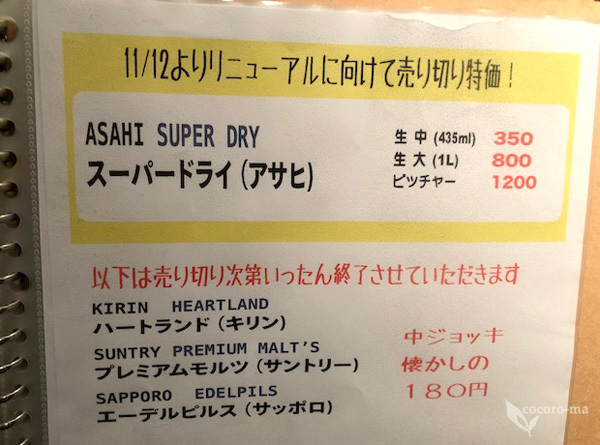 11/12よりリニューアルに向けて売り切り特価！
ASAHI SUPER DRY
スーパードライ（アサヒ）
生 中 (435ml) 350
生 大 (1L) 800
ピッチャー 1200
以下は売り切り次第いったん終了させていただきます
KIRIN HEARTLAND
ハートランド（キリン）
SUNTRY PREMIUM MALT'S
プレミアムモルツ（サントリー）
SAPPORO EDELPILS
エーデルピルス（サッポロ）
中ジョッキ
懐かしの
180円
cocoro-ma